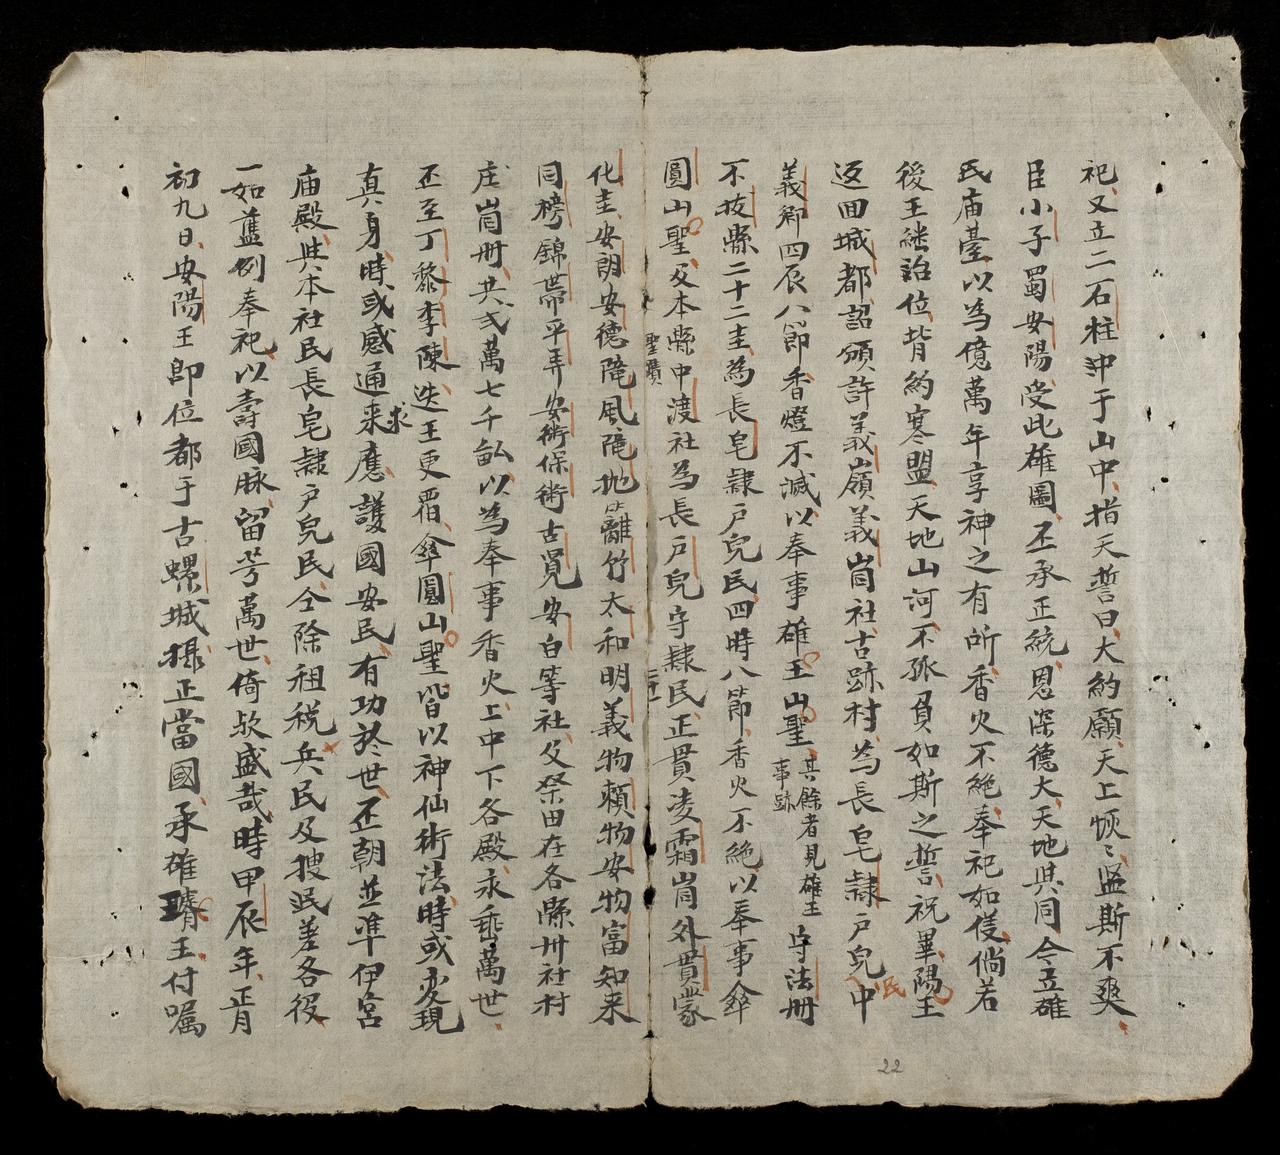 祀又立二石柱冲于山中指天誓曰大約願天上恢〻盟斯不爽
臣小子蜀安陽受此雄圖丕承正統恩深德大天地共同今立雄
氏庙臺以為億萬年享神之有所香火不絶奉祀如僾倘若
後王繼治位背約寒盟天地山河不孤負如斯之誓祝畢陽王
返回城都詔頒許義嶺義崗社古跡村為長皂隸户兒民中
義鄉四辰八節香燈不減以奉事雄王山聖其餘者見雄王事跡守法册
不拔縣二十二圭為長皂隸户兒民四時八節香火不絶以奉事傘
圓山聖及本縣中渡社為長户兒守隸民正貫凌霜崗外貫蒙
聖蹟
化圭安朗安德陵風陵抛籬竹太和明義物賴物安物富知来
同榜錦帶平弄安術保術古覓安白等社及祭田在各縣卅社村
庄崗册共弍萬七千畝以為奉事香火上中下各殿永垂萬世
丕至丁黎李陳迭王更覆傘圓山聖皆以神仙術法時或変現
真身時或感通来求應護國安民有功於世丕朝並準伊宮
庙殿與本社民長皂隸户兒民仝除租税兵民及搜派差各役
一如舊例奉祀以壽國脉留芳萬世倚欤盛哉時甲辰年正月
初九日安陽王即位都于古螺城㨿正當國承雄璿王付嘱